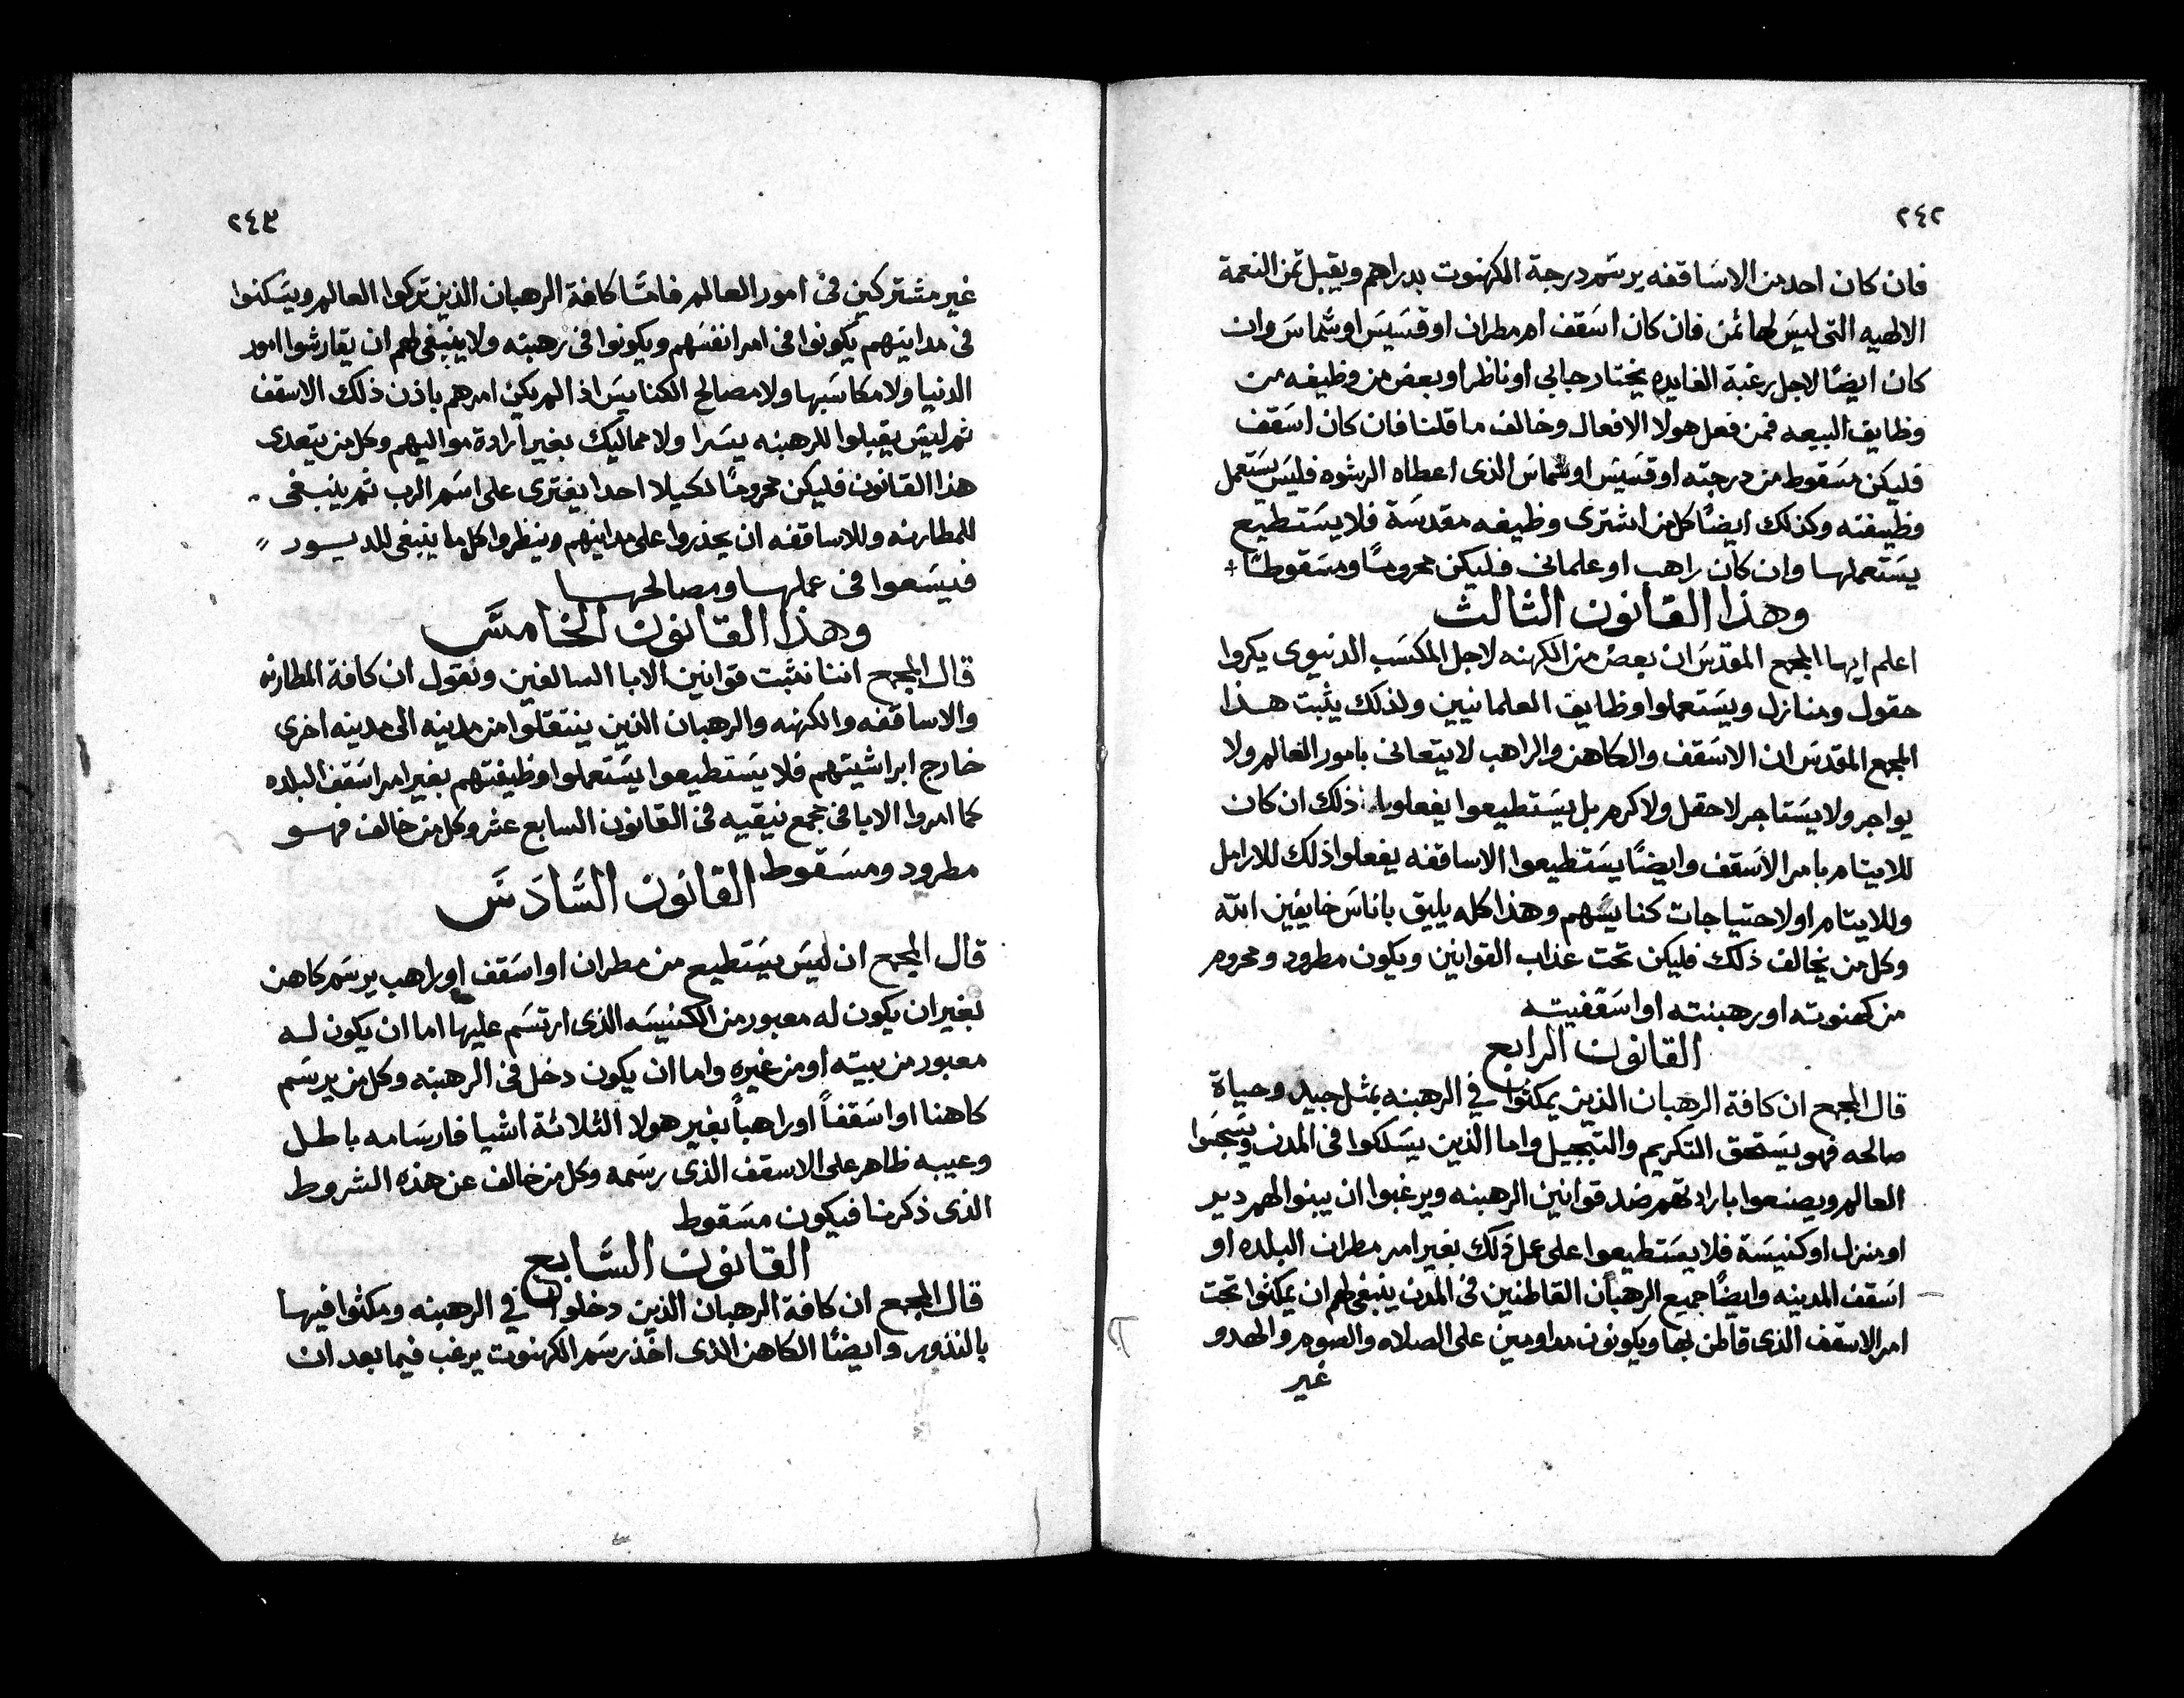 ٢٤٢
فان كان احد من الاساقفه يرسم درجة الكهنوت بدراهم ويقبل ثمن النعمة
الالهيه التى ليس لها ثمن فان كان اسقف ام مطران او قسيس او شماس وان
كان ايضًا لاجل رغبة الفايده يختار جابى او ناظر او بعض من وظيفه من
وظايف البيعه فمن فعل هولا الافعال وخالف ما قلنا فان كان اسقف
فليكن مسقوط من درجته او قسيس او شماس الذى اعطاه الرشوه فليس يستعمل
وظيفته وكذلك ايضًا كل من اشترى وظيفه مقدسة فلا يستطيع
يستعملها وان كان راهب او علمانى فليكن محرومًا ومسقوطًا +
وهذا القانون الثالث
اعلم ايها المجمع المقدس ان بعض من الكهنه لاجل المكسب الدنيوى يكروا
حقول ومنازل ويستعملوا وظايف العلمانيين ولذلك يثبت هذا
المجمع المقدس ان الاسقف والكاهن والراهب لا يتعانى بامور العالم ولا
يواجر ولا يستاجر لا حقل ولا كرم بل يستطيعوا يفعلوا ذلك ان كان
للايتام بامر الاسقف وايضًا يستطيعوا الاساقفه يفعلوا ذلك للارامل
وللايتام او لاحتياجات كنايسهم وهذا كله يليق باناس خايفين الله
وكل من يخالف ذلك فليكن تحت عذاب القوانين ويكون مطرود ومحروم
من كهنوته او رهبنته او اسقفيته
القانون الرابع
قال المجمع ان كافة الرهبان الذين يمكثوا في الرهبنه بمثل جيد وحياة
صالحه فهو يستحق التكريم والتبجيل واما الذين يسلكوا فى المدن ويسجسوا
العالم ويصنعوا بارادتهم ضد قوانين الرهبنه ويرغبوا ان يبنوا لهم دير
او منزل او كنيسة فلا يستطيعوا على عمل ذلك بغير امر مطران البلده او
اسقف المدينه وايضًا جميع الرهبان القاطنين فى المدن ينبغى لهم ان يمكثوا تحت
امر الاسقف الذى قاطن بها ويكونون مداومين على الصلاه والصوم والهدو
غير
٢٤٣
غير مشتركين فى امور العالم فامّا كافة الرهبان الذين تركوا العالم ويسكنوا
فى مداينهم يكونوا فى امر انفسهم ويكونوا فى رهبنه ولا ينبغى لهم ان يقارشوا امور
الدنيا ولا مكاسبها ولا مصالح الكنايس اذ لم يكن امرهم باذن ذلك الاسقف
ثم ليس يقبلوا للرهبنه يسرا ولا مماليك بغير ارادة مواليهم وكل من يتعدى
هذا القانون فليكن محرومًا لكيلا احدا يفترى على اسم الرب ثم ينبغى
للمطارنه وللاساقفه ان يحذروا على مداينهم وينظروا كل ما ينبغى للديور
فيسعوا فى عملها ومصالحها
وهذا القانون الخامس
قال المجمع اننا نثبت قوانين الابا السالفين ونقول ان كافة المطارنه
والاساقفه والكهنه والرهبان الذين ينتقلوا من مدينه الى مدينه اخرى
خارج ابراشيتهم فلا يستطيعوا يستعملوا وظيفتهم بغير امر اسقف البلده
كما امروا الابا فى مجمع نيقيه فى القانون السابع عشر وكل من خالف فهو
مطرود ومسقوط
القانون السادس
قال المجمع ان ليس يستطيع من مطران او اسقف او راهب يرسم كاهن
بغير ان يكون له معبور من الكنيسه الذى ارتسم عليها اما ان يكون له
معبور من بيته او من غيره واما ان يكون دخل فى الرهبنه وكل من يرسم
كاهنا او اسقفاً او راهباً بغير هولا الثلاثة اشيا فارسامه باطل
وعيبه ظاهر على الاسقف الذى رسمه وكل من خالف عن هذه الشروط
الذى ذكرنا فيكون مسقوط
القانون السابع
قال المجمع ان كافة الرهبان الذين دخلوا في الرهبنه ومكثوا فيها
بالنذور وايضًا الكاهن الذى اخذ رسم الكهنوت يرغب فيما بعد ان